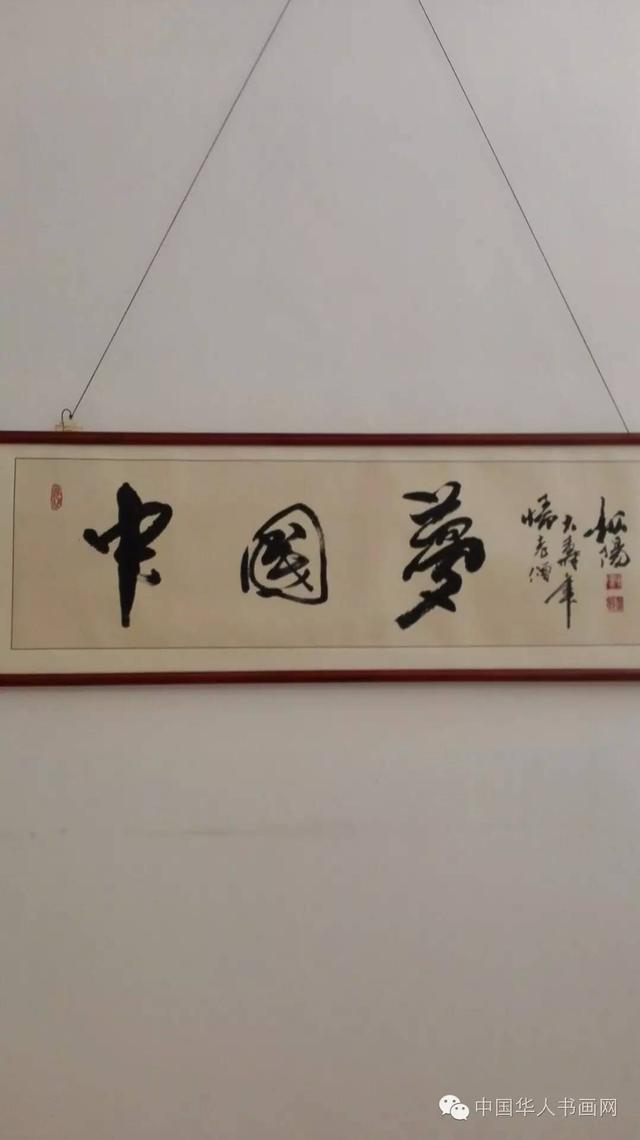 中國夢
大壽年
松陽
中国华人书画网